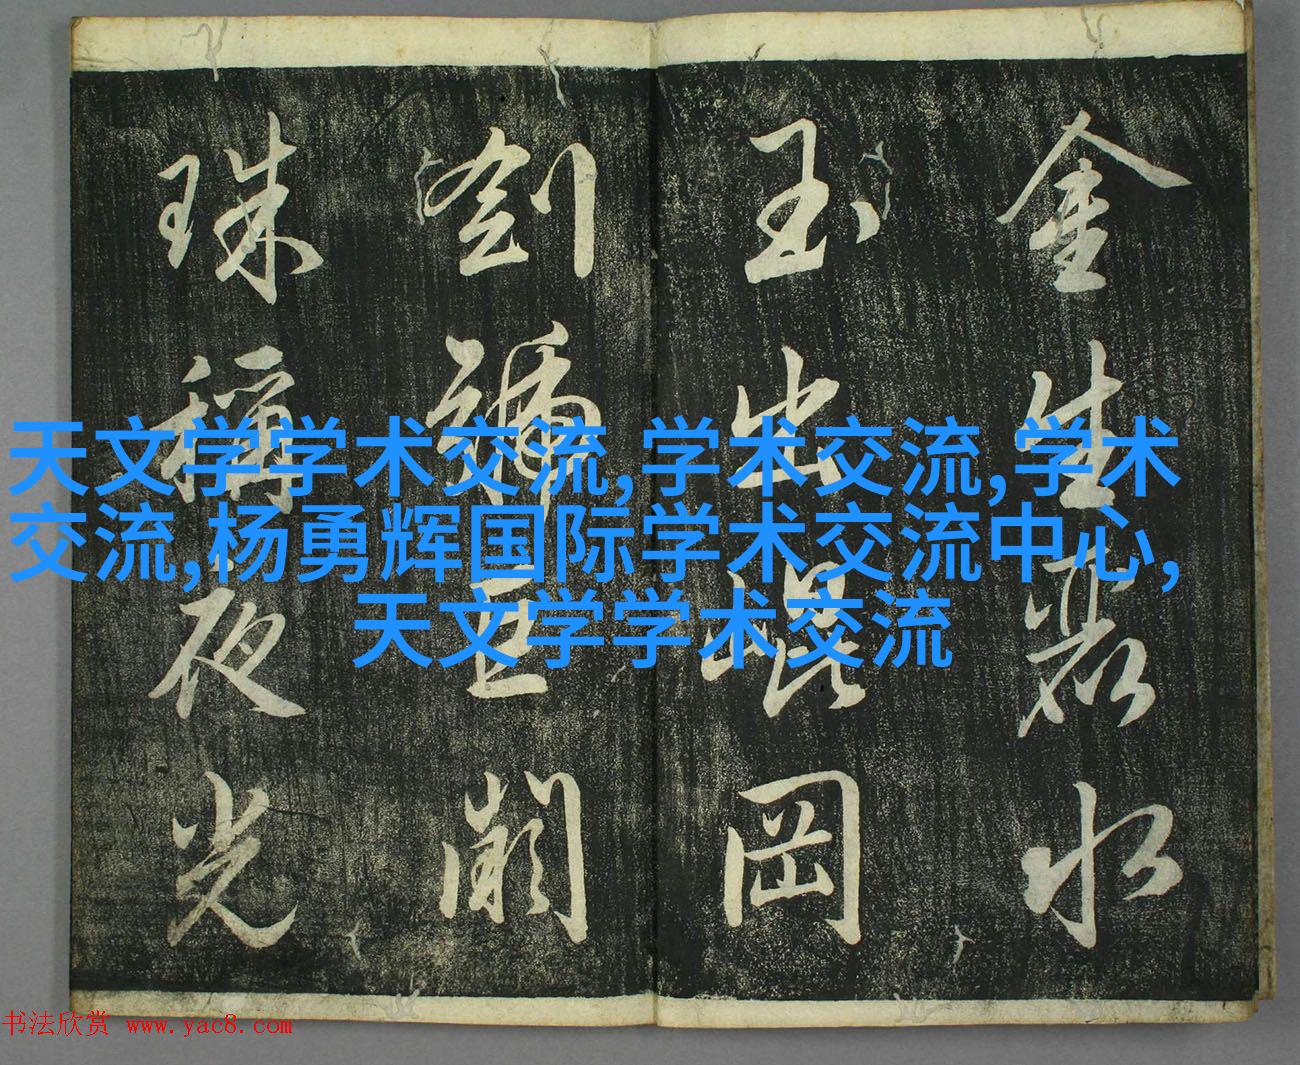 金生麗水
玉出崑岡
劍號巨闕
珠稱夜光
天文学学术交流,学术交流,学术
交流,杨勇辉国际学术交流中心,
天文学学术交流
书法欣赏 www.yac8.com